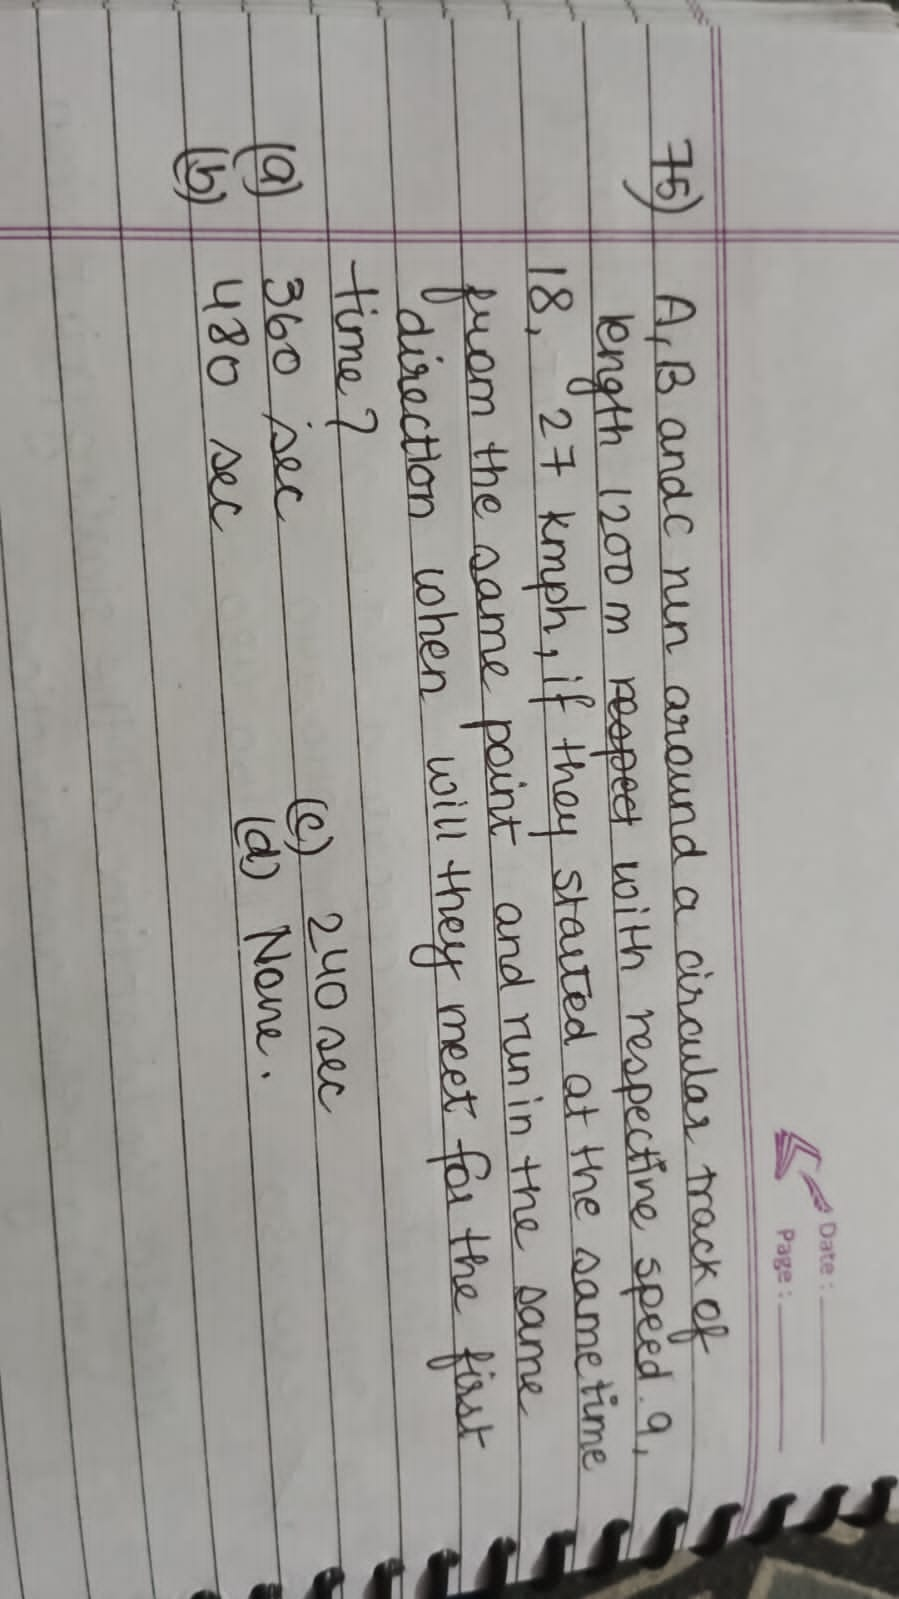 Date :
Page :
75) A, B and c run around a circular track of
length 1200 m respect with respective speed. 9,
18, 27 kmph, if they started at the same time
from the same point and run in the same
direction when will they meet for the first
time?
(a) 360 sec (c) 240 sec
(b) 480 sec (d) None.